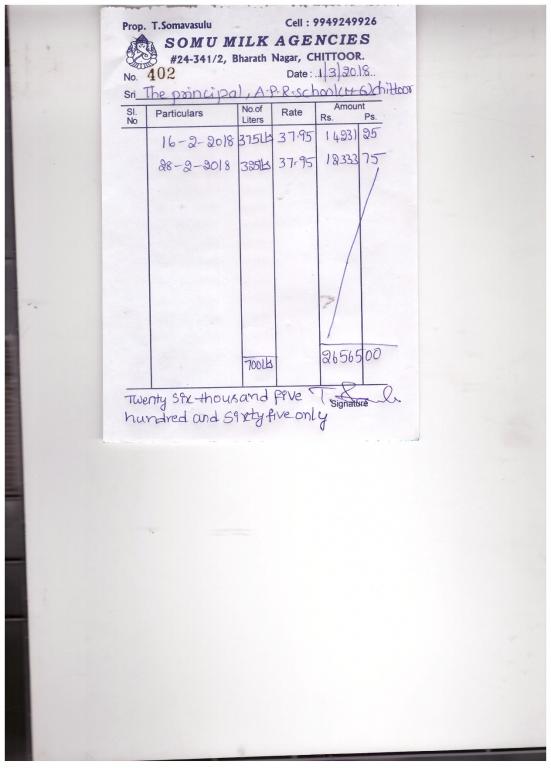 Prop. T.Somavasulu Cell : 9949249926
SOMU MILK AGENCIES
#24-341/2, Bharath Nagar, CHITTOOR.
No. 402 Date : 1/3/2018
Sri The principal, A.P.R. school(H-G)chittoor
Sl. No Particulars No.of Liters Rate Amount Rs. Ps.
16-2-2018 375Lts 37.95 14231 25
28-2-2018 325Lts 37.95 12333 75
700Lts 26565 00
Twenty Six thousand five
hundred and Sixty five only
Signature